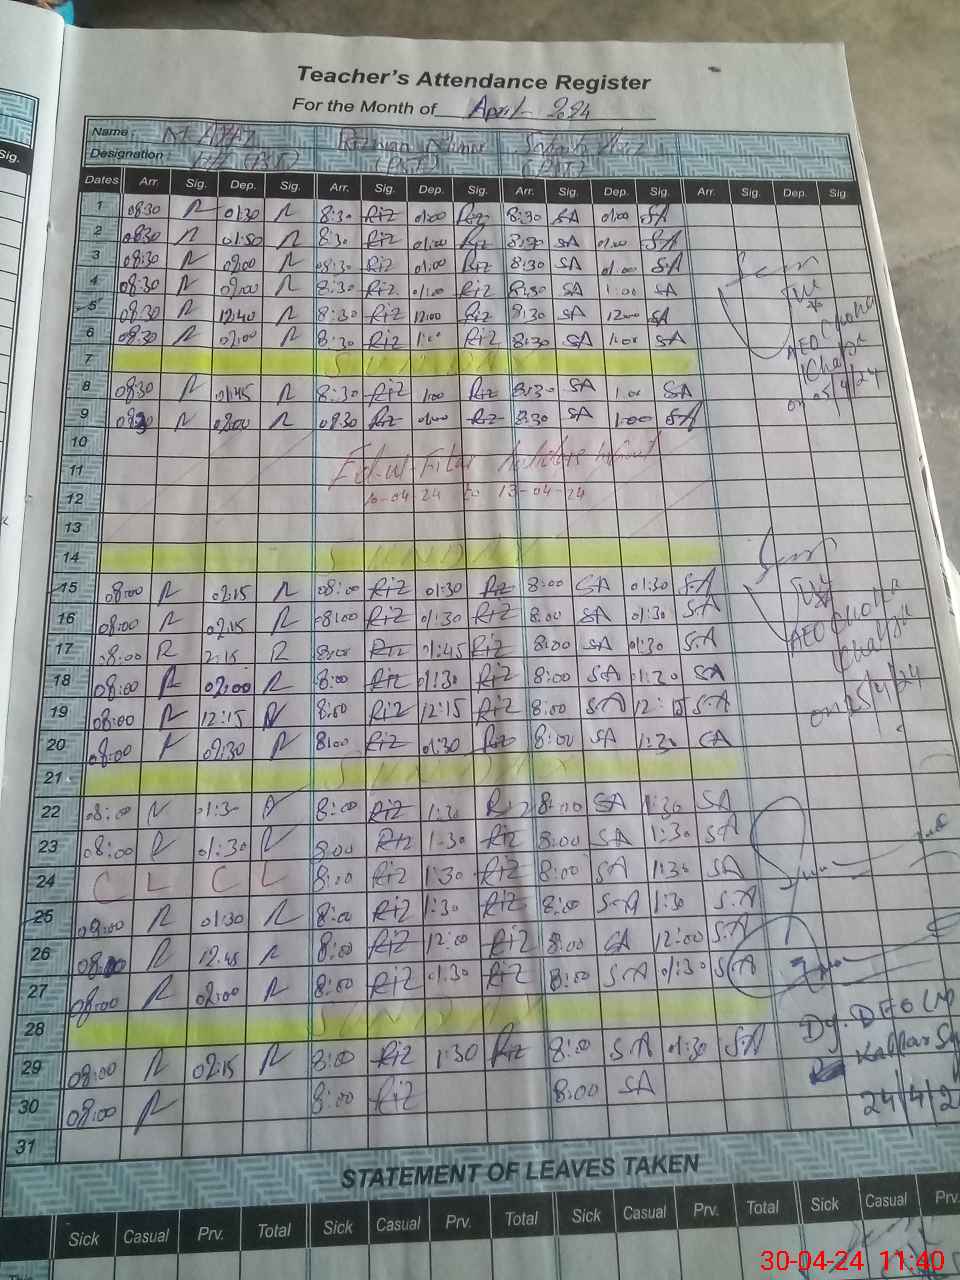 Teacher's Attendance Register
For the Month of April 2024
Name:
Designation: (PST) (PST)
Sig. Dates Arr. Sig. Dep. Sig. Arr. Sig. Dep. Sig. Arr. Sig. Dep. Sig. Arr. Sig. Dep. Sig.
1 08:30 R 01:30 R 8:30 Riz 01:00 Riz 8:30 SA 01:00 SA
2 08:30 R 01:50 R 8:30 Riz 01:00 Riz 8:30 SA 01:00 SA
3 08:30 R 02:00 R 08:30 Riz 01:00 Riz 8:30 SA 01:00 SA
4 08:30 R 02:00 R 8:30 Riz 01:00 Riz 8:30 SA 1:00 SA
5 08:30 R 12:40 R 8:30 Riz 12:00 Riz 8:30 SA 12:00 SA
6 08:30 R 02:00 R 8:30 Riz 1:00 Riz 8:30 SA 1:00 SA
7 SUNDAY
8 08:30 R 01:45 R 8:30 Riz 1:00 Riz 8:30 SA 1:00 SA
on 05/4/24
9 08:30 R 02:00 R 08:30 Riz 01:00 Riz 8:30 SA 1:00 SA
10
11 Eid-ul-Fitar
12 10-04-24 to 13-04-24
13
14 SUNDAY
15 08:00 R 02:15 R 08:00 Riz 01:30 Riz 8:00 SA 01:30 SA
16 08:00 R 02:15 R 08:00 Riz 01:30 Riz 8:00 SA 01:30 SA
17 08:00 R 2:15 R 8:00 Riz 01:45 Riz 8:00 SA 01:30 SA
18 08:00 R 02:00 R 8:00 Riz 01:30 Riz 8:00 SA 01:30 SA
19 08:00 R 12:15 R 8:00 Riz 12:15 Riz 8:00 SA 12:15 SA
on 25/4/24
20 08:00 R 02:30 R 8:00 Riz 01:30 Riz 8:00 SA 1:30 SA
21 SUNDAY
22 08:00 R 01:30 R 8:00 Riz 1:30 Riz 8:00 SA 1:30 SA
23 08:00 R 01:30 R 8:00 Riz 1:30 Riz 8:00 SA 1:30 SA
24 C L C L 8:00 Riz 1:30 Riz 8:00 SA 1:30 SA
25 08:00 R 01:30 R 8:00 Riz 1:30 Riz 8:00 SA 1:30 SA
26 08:00 R 12:45 R 8:00 Riz 12:00 Riz 8:00 SA 12:00 SA
27 08:00 R 02:00 R 8:00 Riz 01:30 Riz 8:00 SA 01:30 SA
28 SUNDAY
Dy. DEO
29 08:00 R 02:15 R 8:00 Riz 1:30 Riz 8:00 SA 01:30 SA
30 08:00 R 8:00 Riz 8:00 SA
24/4/2
31
STATEMENT OF LEAVES TAKEN
Sick Casual Prv. Total Sick Casual Prv. Total Sick Casual Prv. Total Sick Casual Prv.
30-04-24 11:40